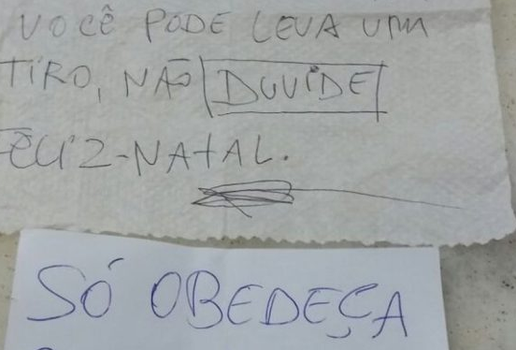 VOCÊ PODE LEVA UMA
TIRO, NÃO DUVIDE
FELIZ-NATAL.
SÓ OBEDEÇA